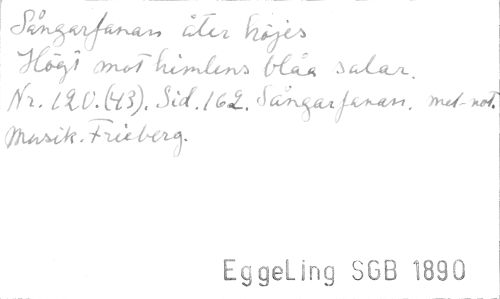 Sångarfanan åter höjes
Högt mot himlens blåa salar.
Nr. 120. (43). Sid. 162. Sångarfanan. met-not.
Musik. Frieberg.
EggeLing SGB 1890